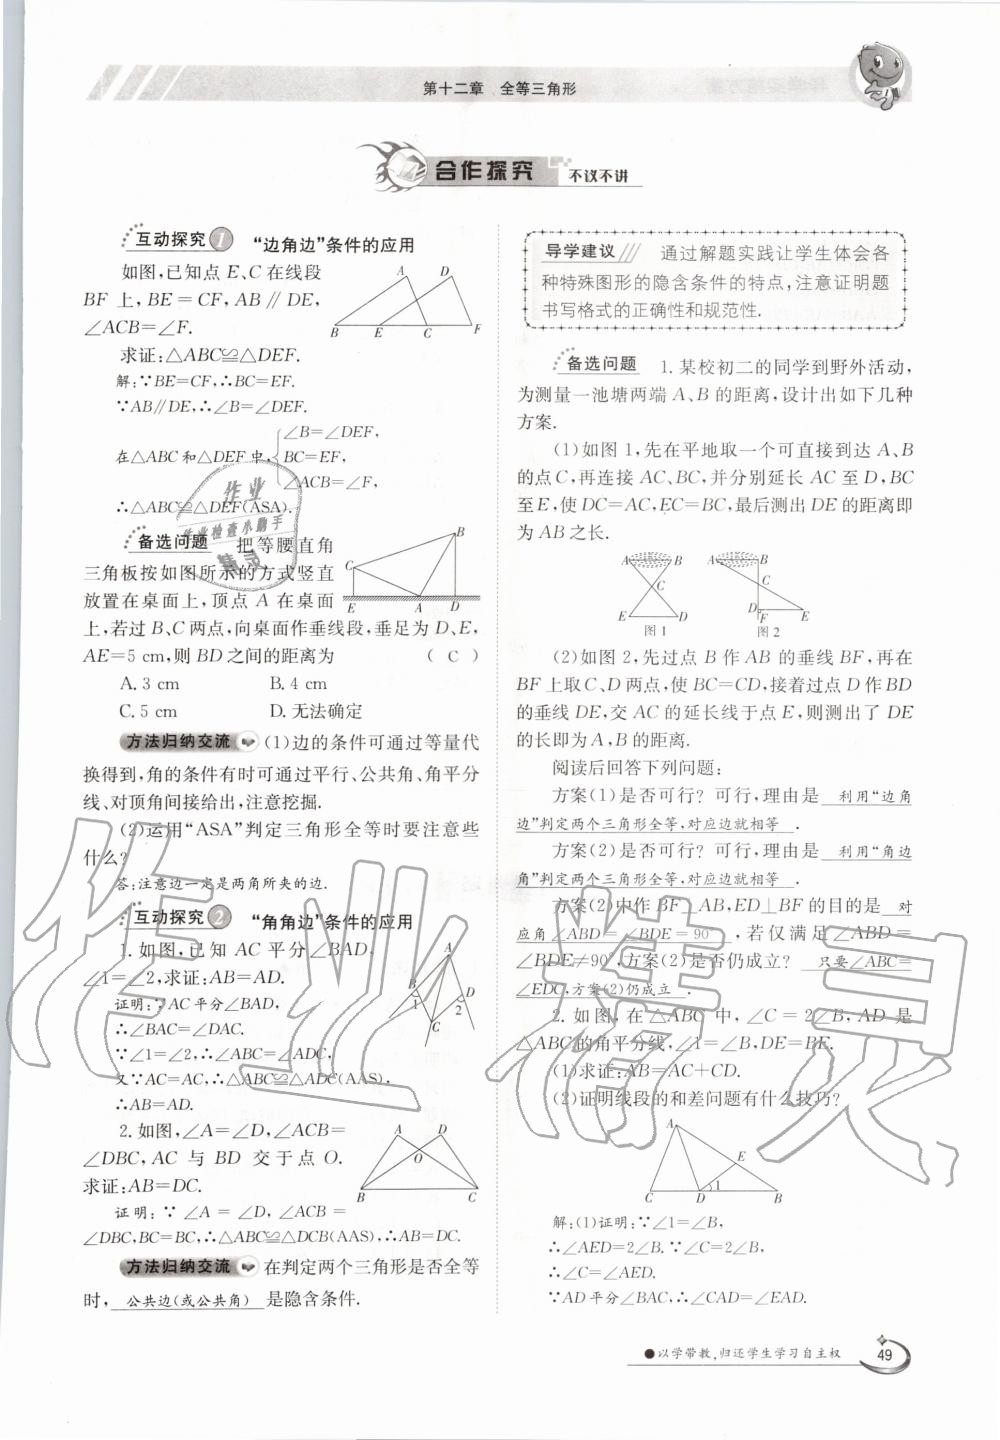 第十二章 全等三角形
合作探究 不议不讲
互动探究1 “边角边”条件的应用
如图,已知点 E、C 在线段
BF 上,BE=CF,AB∥DE,
∠ACB=∠F.
求证:△ABC≌△DEF.
解:∵BE=CF,∴BC=EF.
∵AB∥DE,∴∠B=∠DEF.
∠B=∠DEF,
在△ABC和△DEF中, BC=EF,
∠ACB=∠F,
∴△ABC≌△DEF(ASA).
A D
B E C F
备选问题 把等腰直角
三角板按如图所示的方式竖直
放置在桌面上,顶点 A 在桌面
上,若过 B、C 两点,向桌面作垂线段,垂足为 D、E,
AE=5 cm,则 BD 之间的距离为 ( C )
A. 3 cm B. 4 cm
C. 5 cm D. 无法确定
B
C
E A D
方法归纳交流 (1)边的条件可通过等量代
换得到,角的条件有时可通过平行、公共角、角平分
线、对顶角间接给出,注意挖掘.
(2)运用“ASA”判定三角形全等时要注意些
什么?
答:注意边一定是两角所夹的边.
互动探究2 “角角边”条件的应用
1. 如图,已知 AC 平分∠BAD,
∠1=∠2,求证:AB=AD.
证明:∵AC平分∠BAD,
∴∠BAC=∠DAC.
∵∠1=∠2,∴∠ABC=∠ADC,
又∵AC=AC,∴△ABC≌△ADC(AAS),
∴AB=AD.
A
B D
1 2
C
2. 如图,∠A=∠D,∠ACB=
∠DBC,AC 与 BD 交于点 O.
求证:AB=DC.
证明:∵∠A=∠D,∠ACB=
∠DBC,BC=BC,∴△ABC≌△DCB(AAS),∴AB=DC.
A D
O
B C
方法归纳交流 在判定两个三角形是否全等
时, 公共边(或公共角) 是隐含条件.
导学建议 通过解题实践让学生体会各
种特殊图形的隐含条件的特点,注意证明题
书写格式的正确性和规范性.
备选问题 1. 某校初二的同学到野外活动,
为测量一池塘两端 A、B 的距离,设计出如下几种
方案.
(1)如图 1,先在平地取一个可直接到达 A、B
的点 C,再连接 AC、BC,并分别延长 AC 至 D,BC
至 E,使 DC=AC,EC=BC,最后测出 DE 的距离即
为 AB 之长.
A B A B
C C
E D D F E
图1 图2
(2)如图 2,先过点 B 作 AB 的垂线 BF,再在
BF 上取 C、D 两点,使 BC=CD,接着过点 D 作 BD
的垂线 DE,交 AC 的延长线于点 E,则测出了 DE
的长即为 A,B 的距离.
阅读后回答下列问题:
方案(1)是否可行? 可行,理由是 利用“边角
边”判定两个三角形全等,对应边就相等 .
方案(2)是否可行? 可行,理由是 利用“角边
角”判定两个三角形全等,对应边就相等 .
方案(2)中作 BF⊥AB,ED⊥BF 的目的是 对
应角∠ABD=∠BDE=90° ,若仅满足∠ABD=
∠BDE≠90°,方案(2)是否仍成立? 只要∠ABC=
∠EDC,方案(2)仍成立 .
2. 如图,在△ABC 中,∠C=2∠B,AD 是
△ABC 的角平分线,∠1=∠B,DE=BE.
(1)求证:AB=AC+CD.
(2)证明线段的和差问题有什么技巧?
A
E
1
C D B
解:(1)证明:∵∠1=∠B,
∴∠AED=2∠B.∵∠C=2∠B,
∴∠C=∠AED.
∵AD平分∠BAC,∴∠CAD=∠EAD.
●以学带教,归还学生学习自主权 49
作业
作业检查小助手
精灵
作业精灵